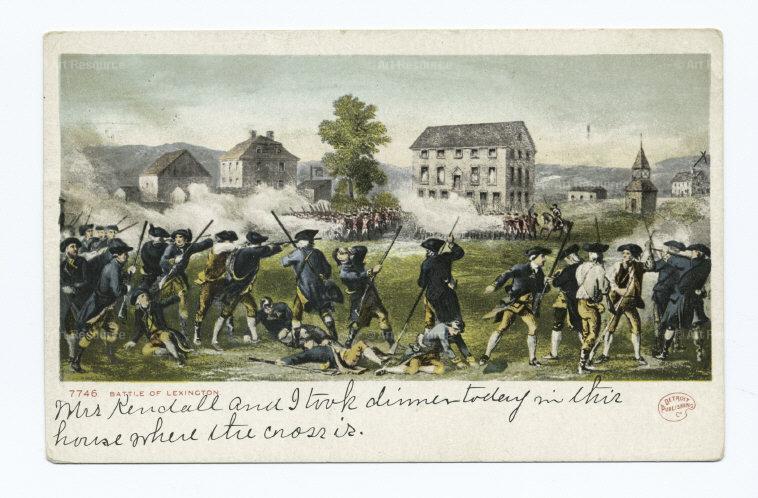 Art Resource Art Resource Art Resource
7746. BATTLE OF LEXINGTON.
Mrs Kendall and I took dinner today in this
house where the cross is.
DETROIT
PUBLISHING
Co